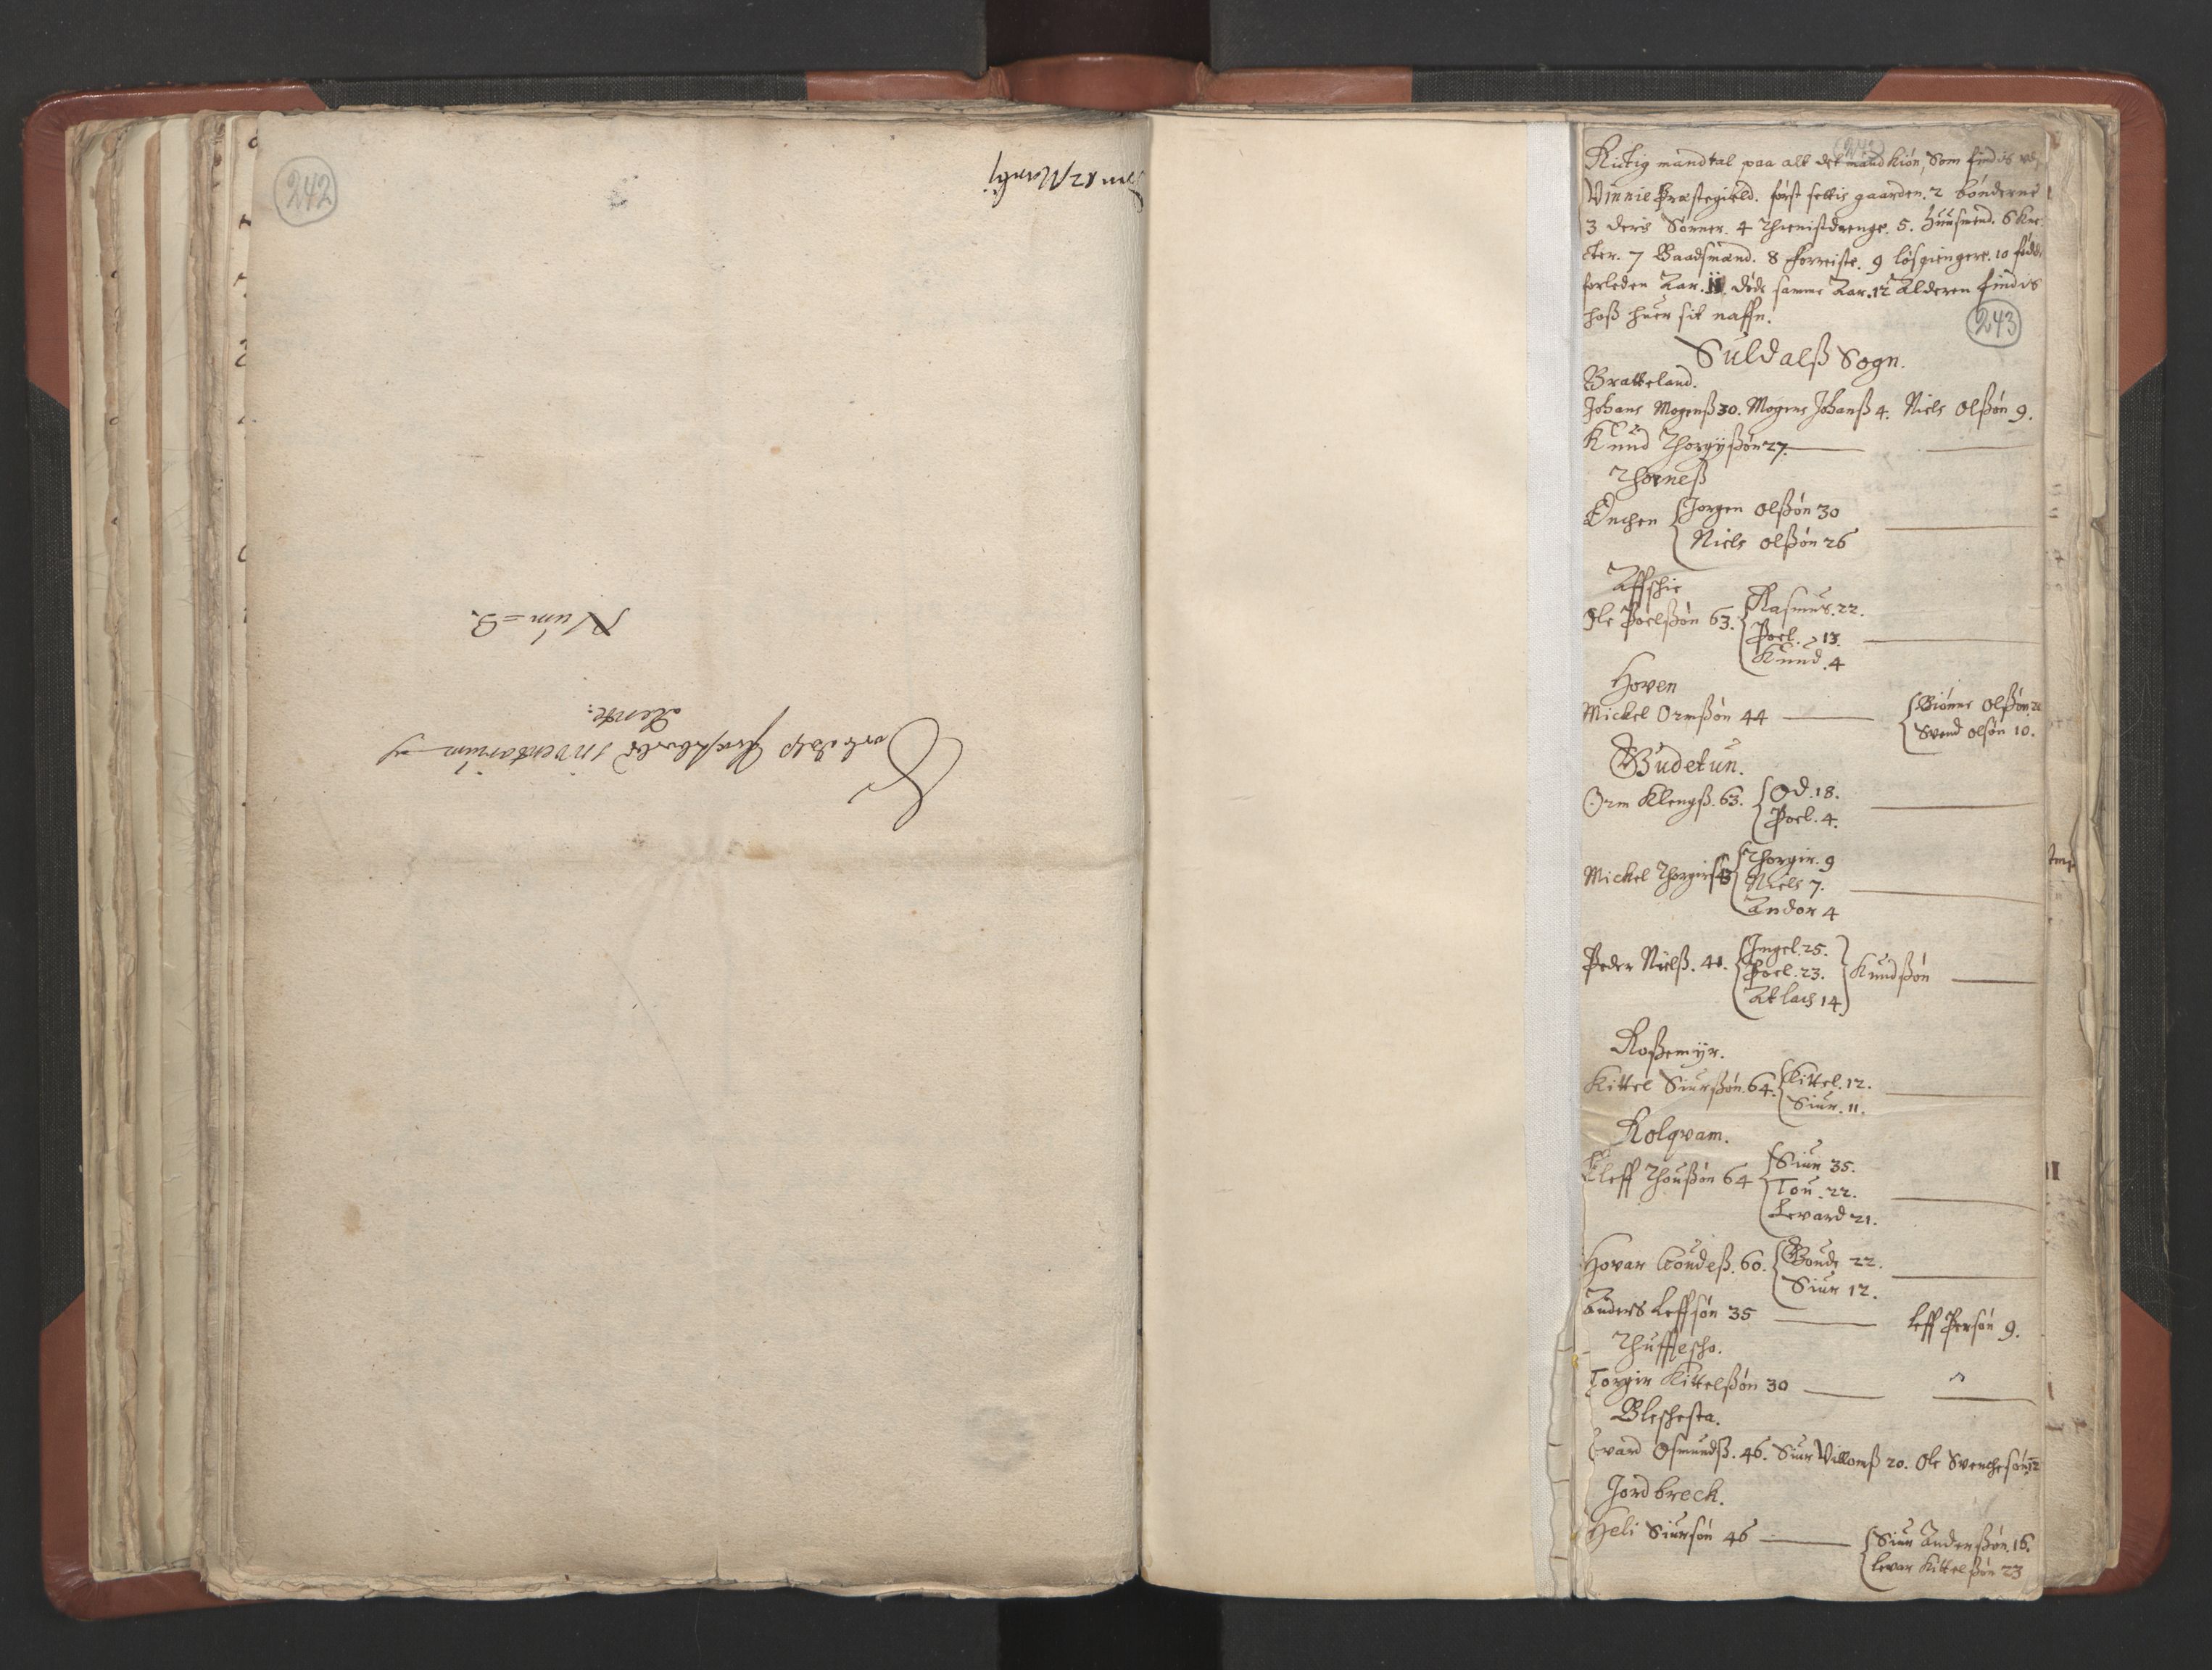 242
Num= 3.
inventarium
243
Rictig mandtal paa alt det mand kiøn, Som findis udj
Vinnie Præstegield. først settis gaarden. 2 bønderne
3 deris Sønner. 4 Thienistdrenge. 5. Huusmend. 6 Kne-
cter. 7 Baadsmænd. 8 forreiste. 9 løsgiengere. 10 fødde
forleden Aar. 11. døde samme Aar. 12 Alderen findis
hoß huer sit naffn.
Suldalß Sogn.
Bratteland.
Johans Mogenß 30. Mogens Johanß 4. Niels Olßøn 9.
Knud Thorgyßøn 27.
Thorneß
Enchen Jorgen Olßøn 30
Niels Olßøn 26
Affschie
Ole Poelßøn 63. Rasmus. 22.
Poel. 13.
Knud. 4
Hoven
Mickel Ormßøn 44 Biønne Olßøn
Svend Olsøn 10.
Gudetun.
Orm Klengß. 63. Od. 18.
Poel. 4.
Mickel Thorgirß Thorgir. 9
Niels 7.
Andor 4
Peder Nielß. 41. Ingel. 25.
Poel. 23. Knudßøn
Atlach 14
Roßemyr.
Kittel Siurßøn. 64. Kittel. 12.
Siur. 11.
Kolqvam.
Eleff Thoußøn 64 Siur 35.
Tou. 22.
Levard 21.
Hovar Goudeß. 60. Goude 22.
Siur 12.
Anders Leffsøn 35 Leff Persøn 9.
Thuffescho.
Torgir Kittelßøn 30
Bleschesta.
Evard Osmundß. 46. Siur Villomß 20. Ole Svenchesøn 12
Jordbreck.
Heli Siursøn 46 Siur Anderßøn. 16.
Levar Kittelßøn 23